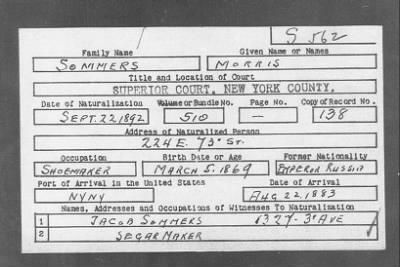 S 562
Family Name Given Name or Names
SOMMERS MORRIS
Title and Location of Court
SUPERIOR COURT, NEW YORK COUNTY.
Date of Naturalization Volume or Bundle No. Page No. Copy of Record No.
SEPT. 22, 1892 510 — 138
Address of Naturalized Person
224 E. 73rd ST.
Occupation Birth Date or Age Former Nationality
SHOEMAKER MARCH 5, 1869 EMPEROR RUSSIA
Port of Arrival in the United States Date of Arrival
NYNY AUG 22, 1883
Names, Addresses and Occupations of Witnesses To Naturalization
1 JACOB SOMMERS 1327-3rd AVE
2 SEGAR MAKER